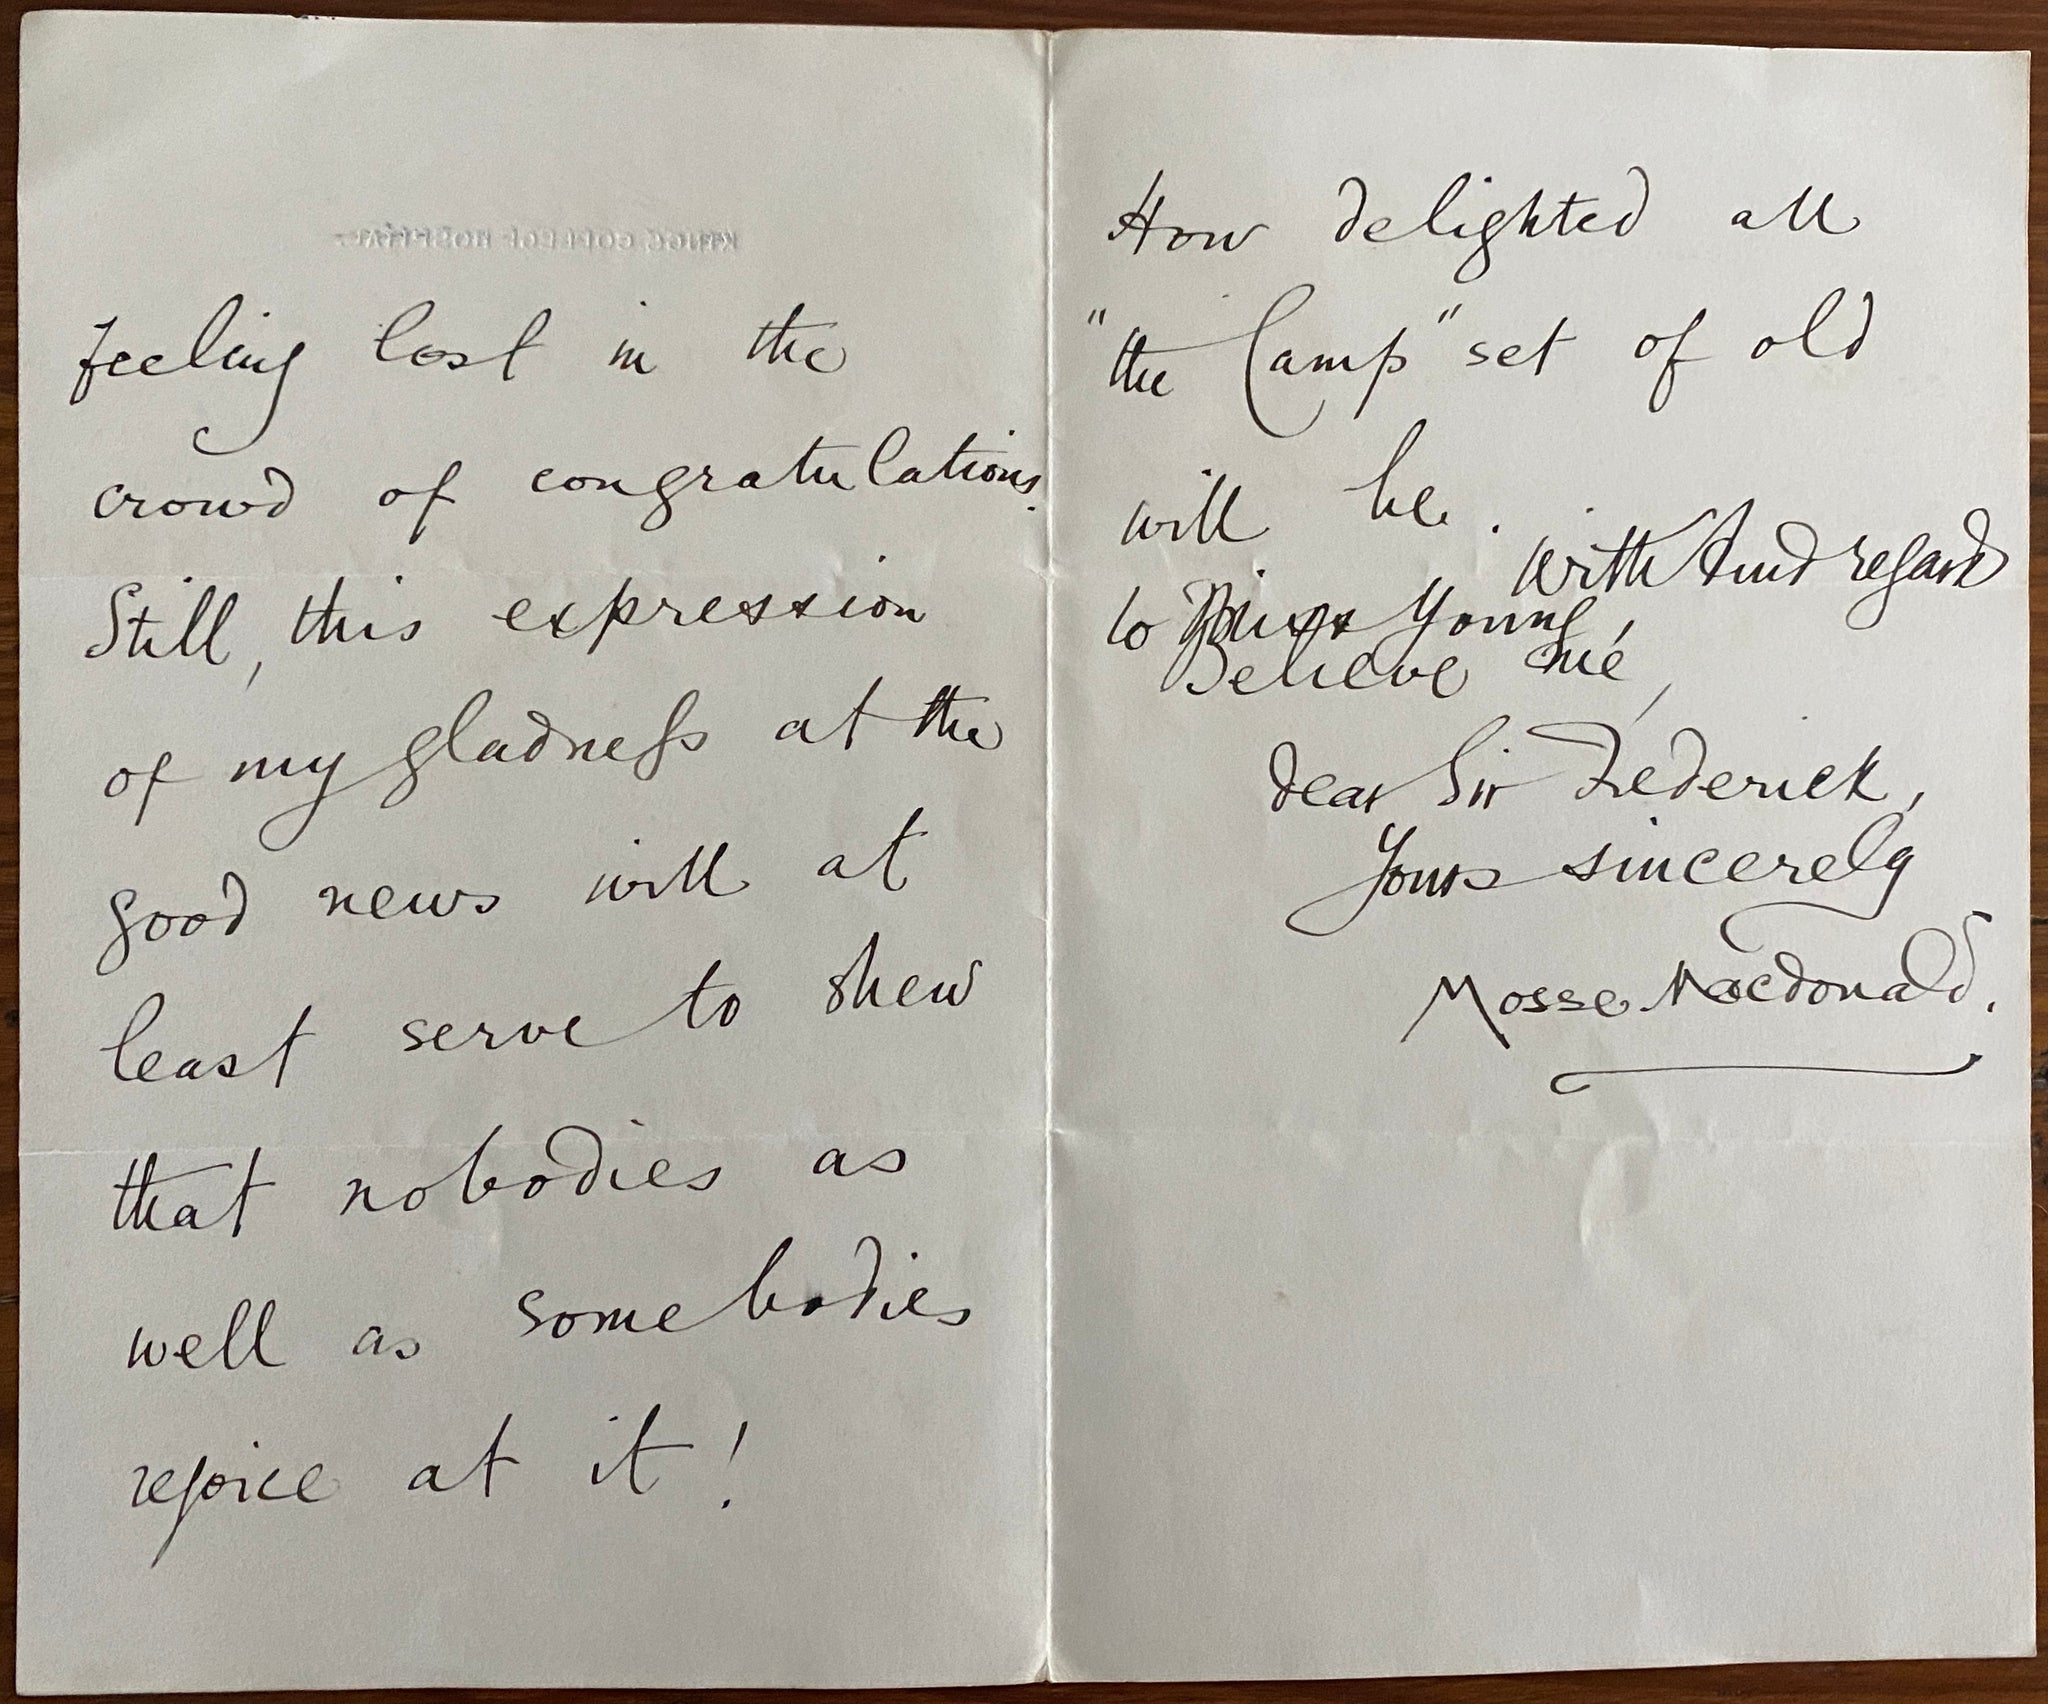 KINGS COLLEGE HOSPITAL.
feeling lost in the
crowd of congratulations.
Still, this expression
of my gladness at the
good news will at
least serve to shew
that nobodies as
well as somebodies
rejoice at it!
How delighted all
"the Camp" set of old
will be.
With kind regards
to Miss Young,
Believe me,
dear Sir Frederick,
Yours sincerely
Mosse Macdonald.